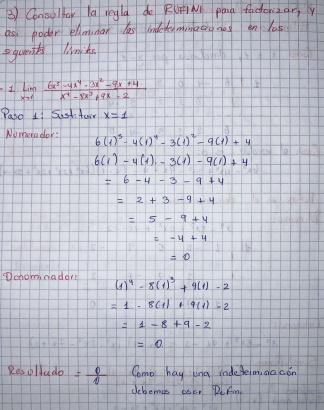 3) Consultar la regla de RUFINI para factorizar, y
asi poder eliminar las indeterminaciones en los
siguentes limites.
1. Lim x→1 6x⁵ - 4x⁴ - 3x² - 9x + 4 / x⁴ - 8x³ + 9x - 2
Paso 1: Sustituir x = 1
Numerador:
6(1)⁵ - 4(1)⁴ - 3(1)² - 9(1) + 4
6(1) - 4(1) - 3(1) - 9(1) + 4
= 6 - 4 - 3 - 9 + 4
= 2 + 3 - 9 + 4
= 5 - 9 + 4
= -4 + 4
= 0
Denominador:
(1)⁴ - 8(1)³ + 9(1) - 2
= 1 - 8(1) + 9(1) - 2
= 1 - 8 + 9 - 2
= 0.
Resultado = 0/0 Como hay una indeterminación
debemos usar